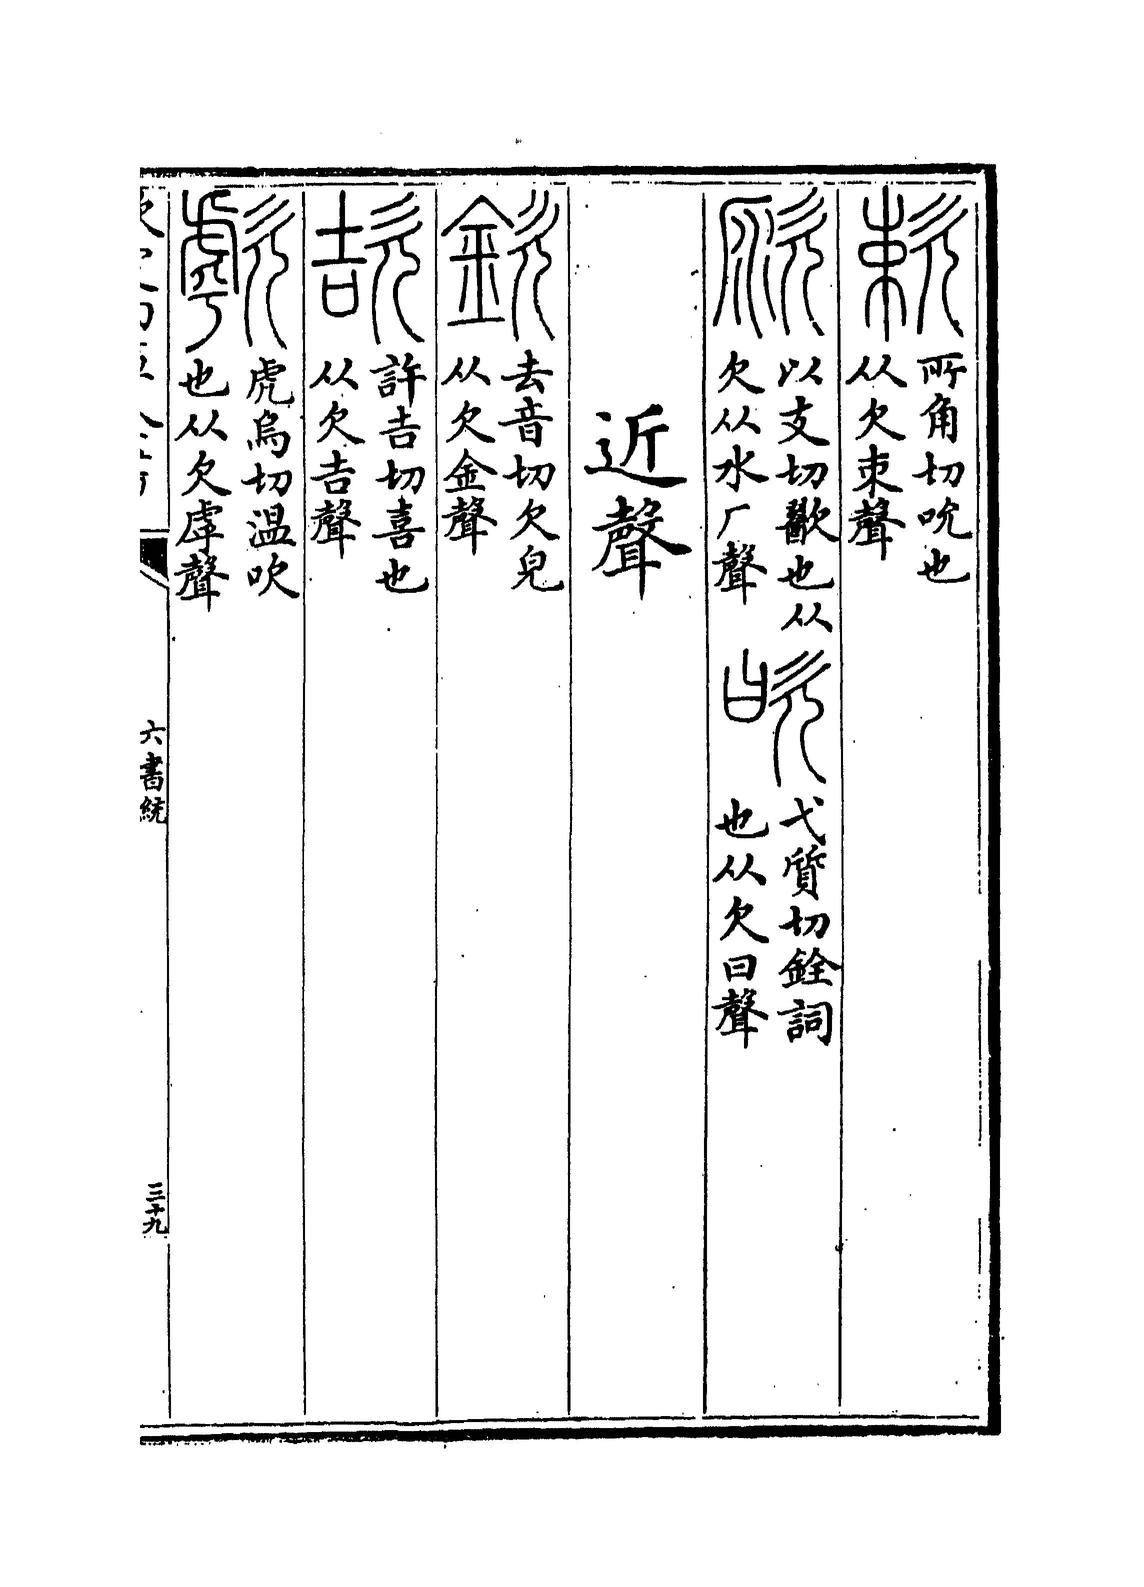 欶
所角切吮也
从欠朿聲
以支切歠也从
欠从水厂聲
欥
弋質切銓詞
也从欠曰聲
近聲
欽
去音切欠皃
从欠金聲
欯
許吉切喜也
从欠吉聲
歑
虎烏切温吹
也从欠虖聲
六書統
三十九